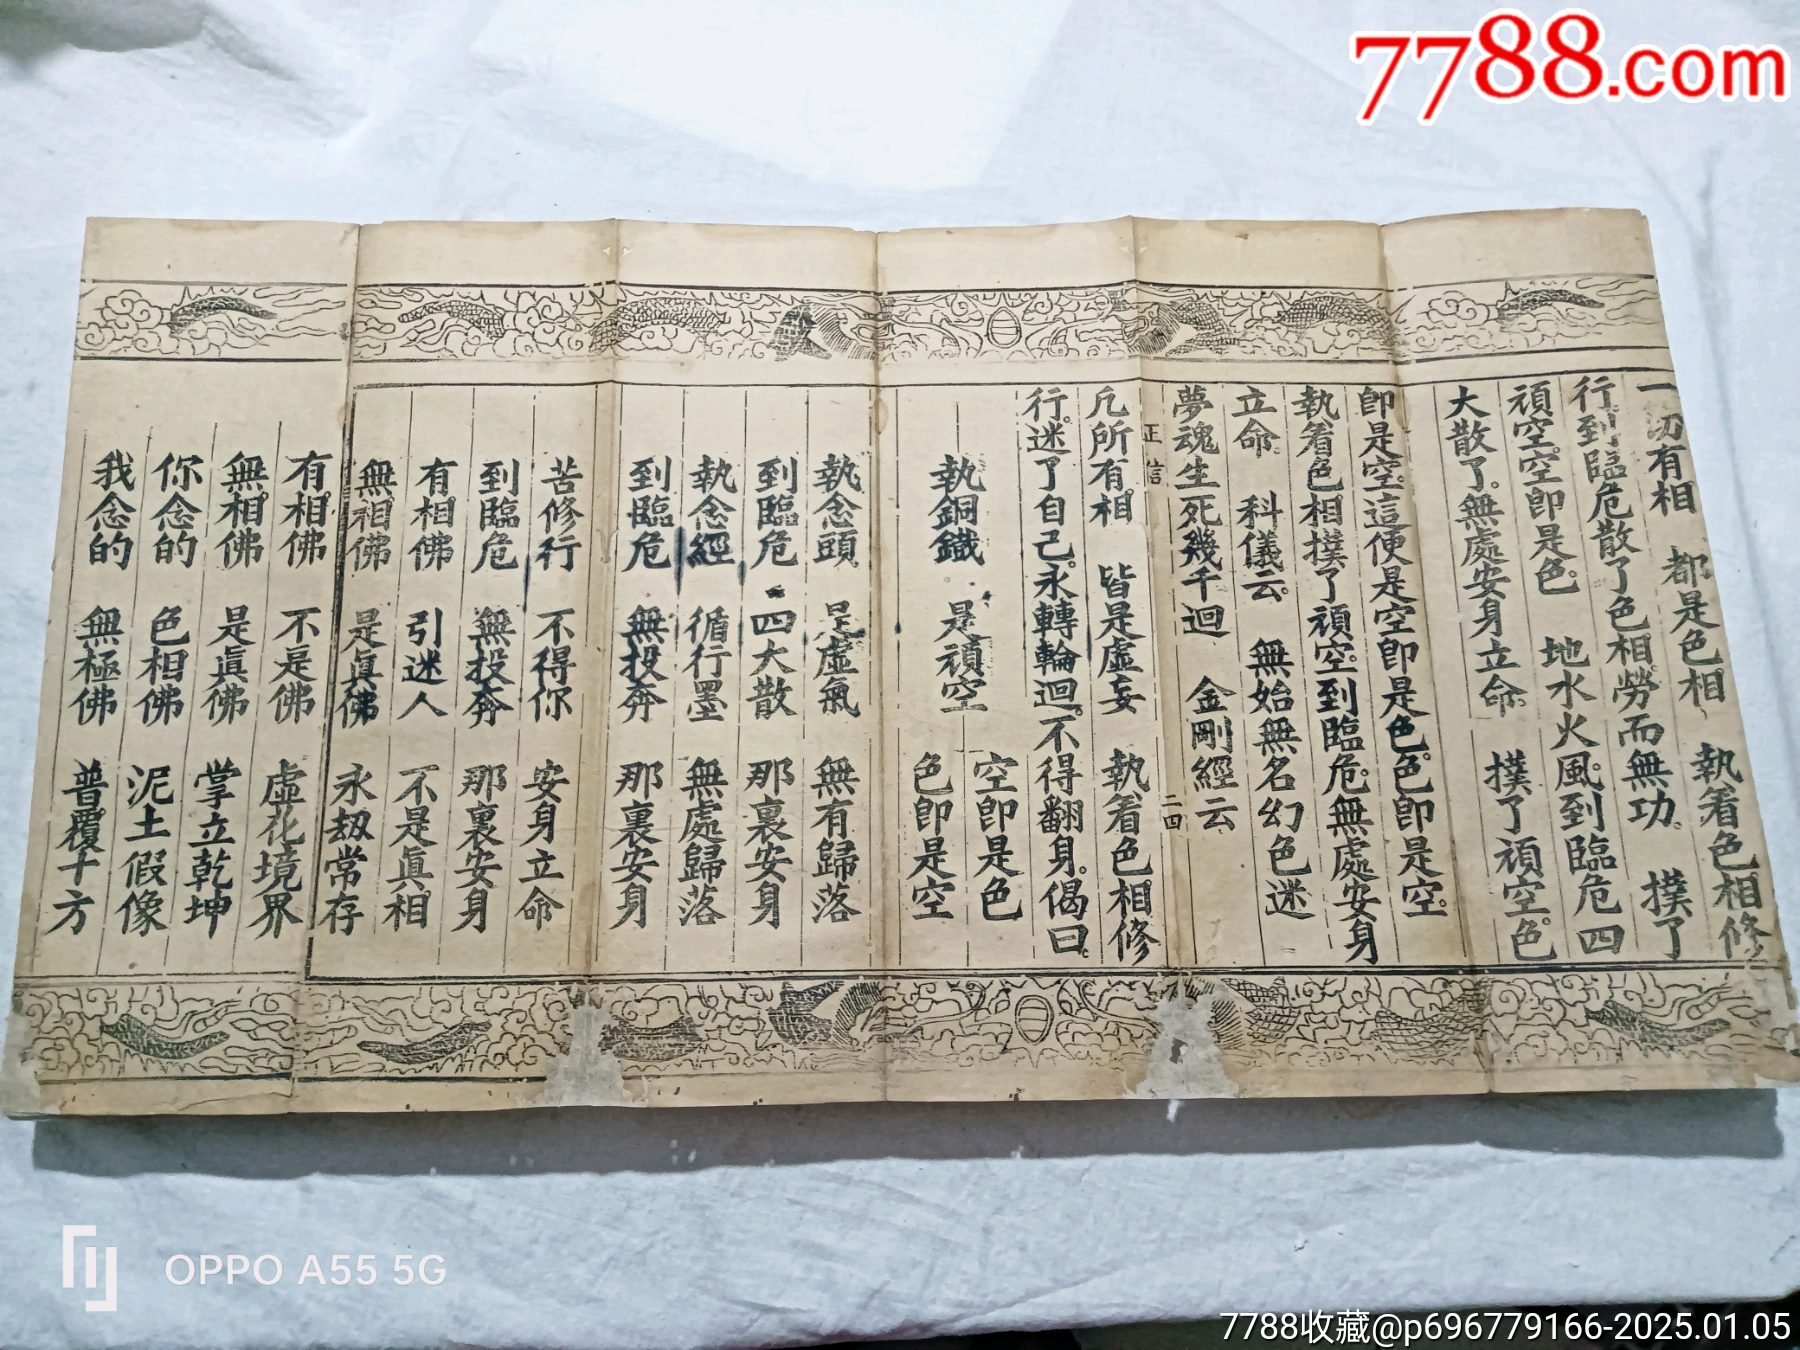 7788.com
一切有相 都是色相 執着色相修
行到臨危散了色相勞而無功 撲了
頑空空卽是色 地水火風到臨危四
大散了無處安身立命 撲了頑空色
卽是空這便是空卽是色色卽是空
執着色相撲了頑空到臨危無處安身
立命 科儀云 無始無名幻色迷
夢魂生死幾千迴 金剛經云
正信 二四
凡所有相 皆是虛妄 執着色相修
行迷了自己永轉輪迴不得翻身偈曰
執銅鐵 是頑空 空卽是色
色卽是空
執念頭 是虛氣 無有歸落
到臨危 四大散 那裏安身
執念經 循行墨 無處歸落
到臨危 無投奔 那裏安身
苦修行 不得你 安身立命
到臨危 無投奔 那裏安身
有相佛 引迷人 不是眞相
無相佛 是眞佛 永劫常存
有相佛 不是佛 虛花境界
無相佛 是眞佛 掌立乾坤
你念的 色相佛 泥土假像
我念的 無極佛 普覆十方
OPPO A55 5G
7788收藏@p696779166-2025.01.05